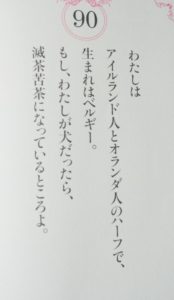 90
わたしは
アイルランド人とオランダ人のハーフで、
生まれはベルギー。
もし、わたしが犬だったら、
滅茶苦茶になっているところよ。